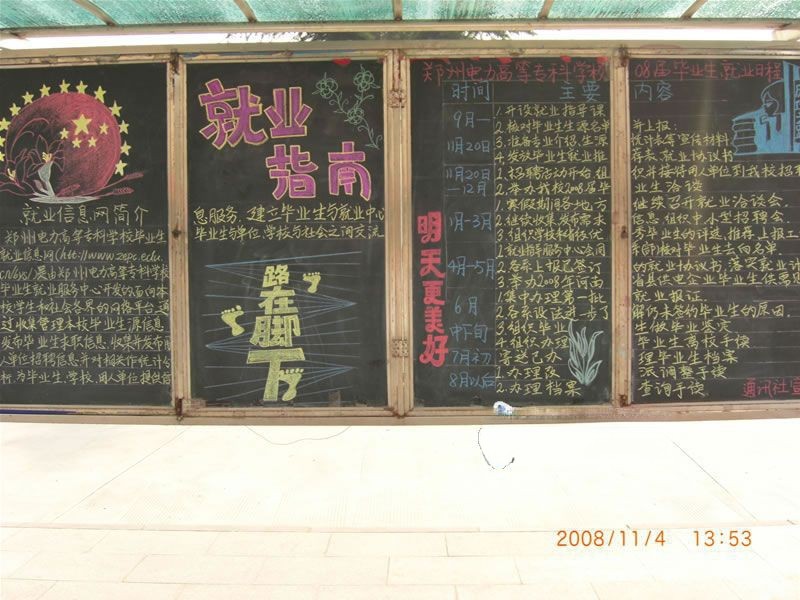 就业信息网简介
郑州电力高等专科学校毕业生
就业信息网(http://www.zepc.edu.
cn/bys/)是由郑州电力高等专科学校
毕业生就业服务中心开发的面向本
校学生和社会各界的网络平台,通
过收集管理本校毕业生源信息
发布毕业生求职信息,收集并发布用
人单位招聘信息并对相关作统计分
析,为毕业生、学校、用人单位提供信
就业
指南
息服务,建立毕业生与就业中心
毕业生与单位,学校与社会之间交流
路在脚下
明天更美好
郑州电力高等专科学校 08届毕业生就业日程
时间 主要 内容
9月—
11月20日
1.开设就业指导课
2.核对毕业生生源名单 并上报;
3.准备专业介绍,生源
4.发放毕业生就业推 荐表,就业协议书
11月20日
—12月
1.招聘活动开始,组 织并接待用人单位到我校招
2.举办我校2008届毕 业生洽谈
1月-3月
1.寒假期间各地方 继续召开就业洽谈会.
2.继续收集发布需求 信息,组织中、小型招聘会.
4月-5月
2.各系上报已签订 的就业协议书,
3.举办2008年河南
6月
中下旬
1.集中办理第一批 就业报证.
3.组织毕业 生做毕业鉴定
4.组织办理 毕业生离校手续
7月初
寄送已办 理毕业生档案
8月以后
1.办理改 派调整手续
2.办理档案 查询手续
通讯社宣
2008/11/4 13:53